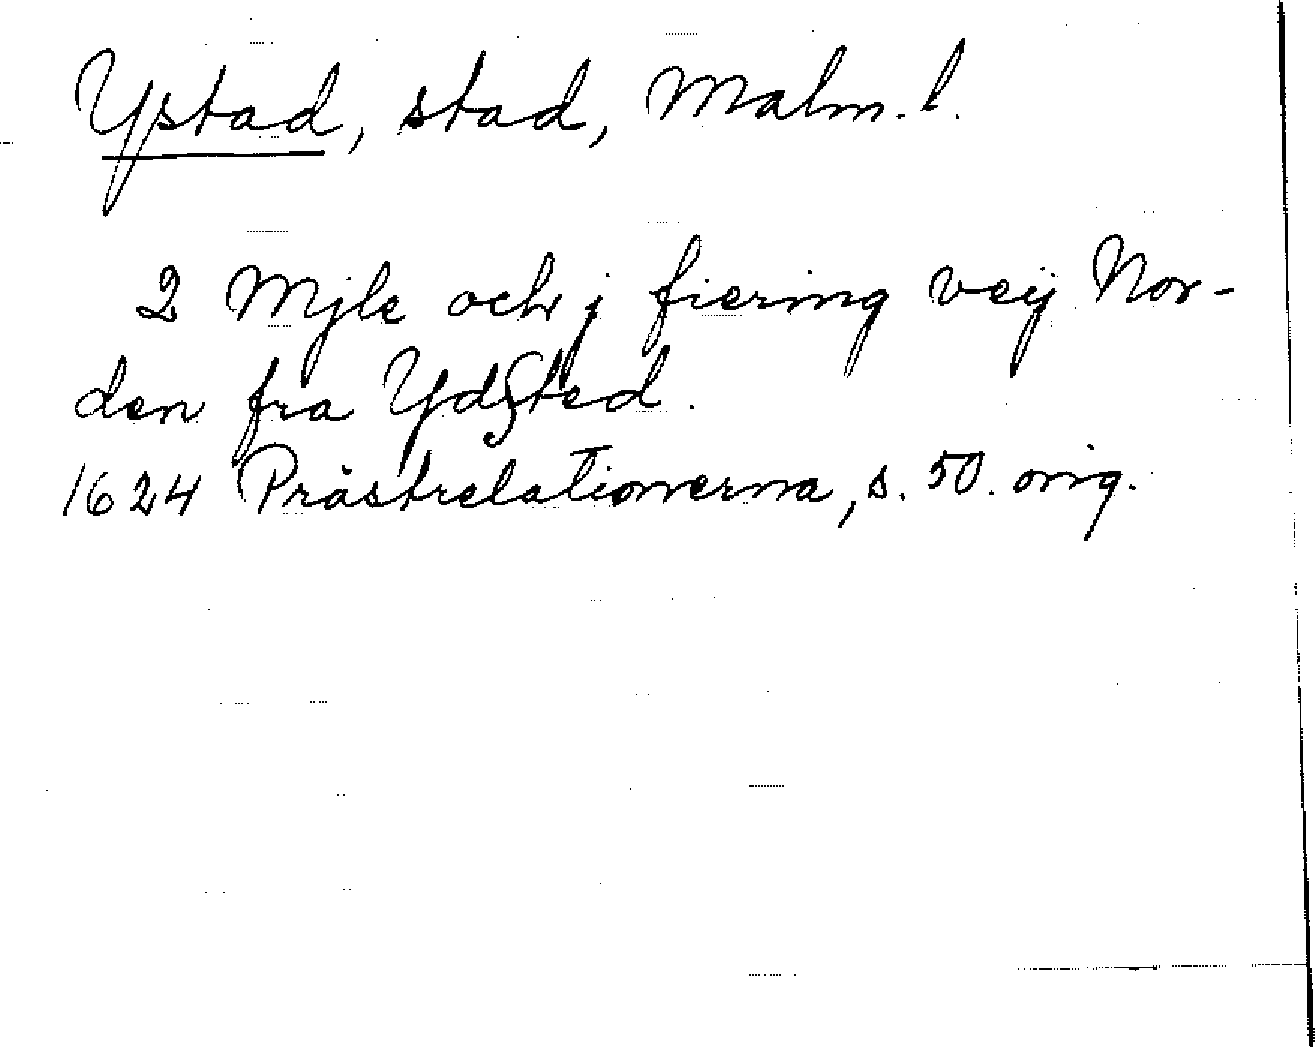 Ystad, stad, Malm. l.
2 Mjle och j fiering veÿ Nor-
den fra Ydsted.
1624 Prästrelationerna, s. 50. orig.